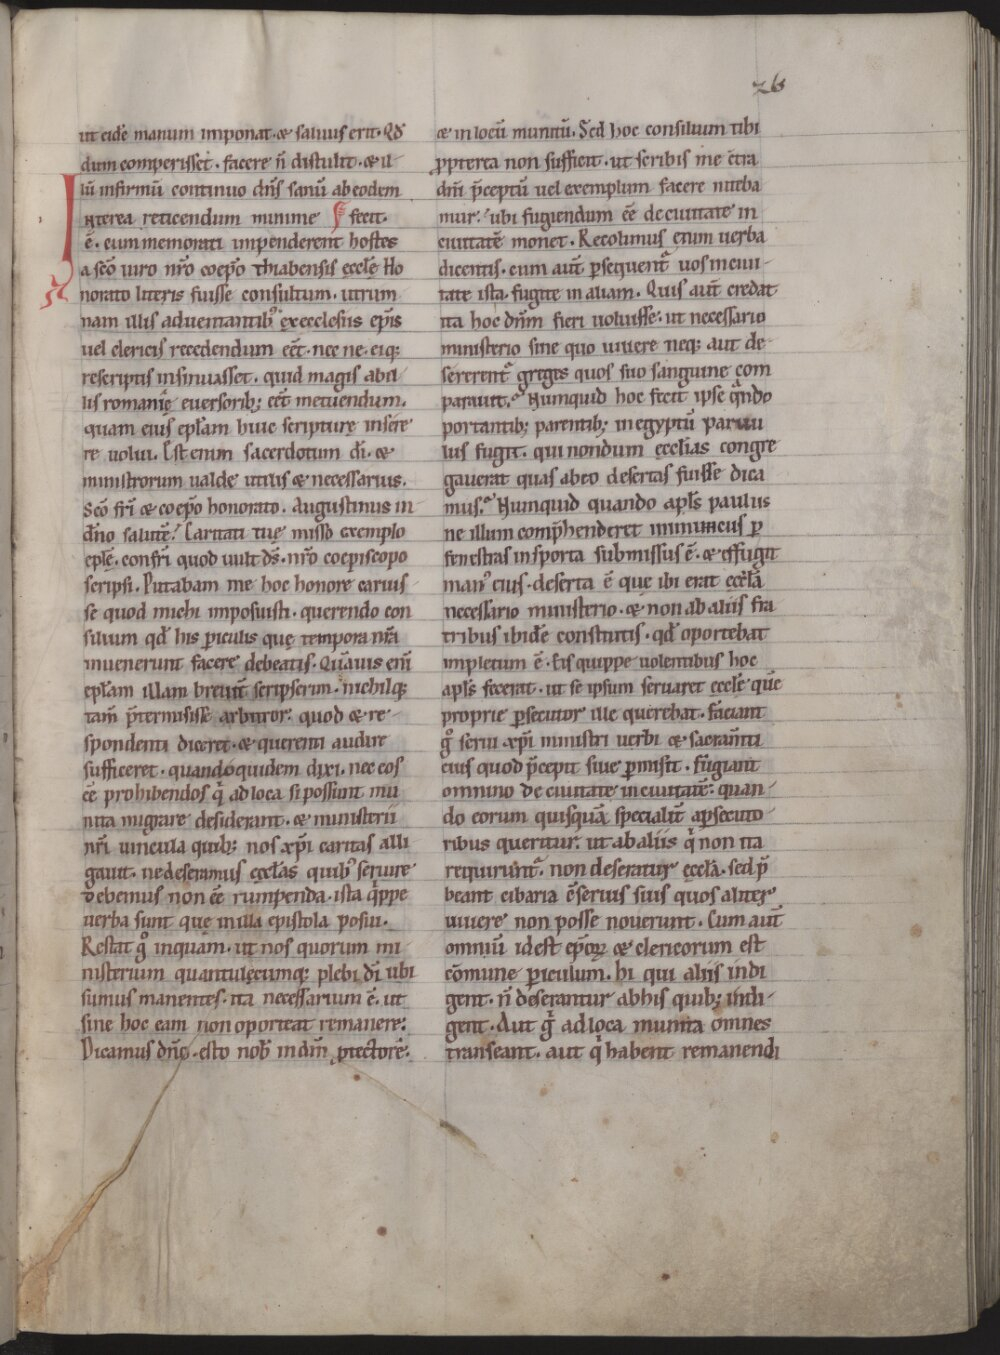 26
ut eidē manum imponat· & saluus erit· Qd̄
dum comperisset· facere n̄ distulit· & il-
lū infirmū continuo dn̄s sanū ab eodem
Interea reticendum minime ſ fecit·
ē· cum memorati impenderent hostes
a scō uiro nr̄o coepō thiabensis eccłę Ho
norato litteris fuisse consultum· utrum
nam illis aduentantib᷒ ex ecclesiis ep̄is
uel clericis recedendum eēt· nec ne· eiq;
rescriptis insinuasset· quid magis ab il-
lis romanię euersorib; eēt metuendum·
quam eius ep̄lam huic scripturę insere
re uolui· Est enim sacerdotum dī· &
ministrorum ualde utilis & necessarius·
Scō frī & coepō honorato· Augustinus in
dn̄o salutē· Caritati tuę misso exemplo
ep̄lę· confrī quod uult d̄s· nr̄o coepiscopo
scripsi· Putabam me hoc honore carius-
se quod michi imposuisti· querendo con
silium qd̄ his p̱iculis quę tempora nr̄a
inuenerunt facere debeatis· Quāuis eni̅
ep̄lam illam breuit̄ scripserim· nichilq;
tam̄ p̄termisisse arbitror· quod & re-
spondenti dicere· & querenti audire
sufficeret· quando quidem dixi· nec eos
eē prohibendos q̄ ad loca si possunt mu
nita migrare desiderant· & ministerii
nr̄i uincula quib; nos xp̄i caritas alli
gauit· ne deseramus eccłas quib᷒ seruire
debemus non eē rumpenda· ista q̄ppe
uerba sunt quę in illa epistola posui·
Restat g̊ inquam· ut nos quorum mi-
nisterium quantulęcumq; plebi dī ubi
sumus manentes· ita necessarium ē· ut
sine hoc eam non oporteat remanere·
Dicamus dn̄o· esto nob᷒ in dm̄ ꝓtectorē·
& in locū munitū· Sed hoc consilium tibi
ꝓpterea non sufficit· ut scribis ne c̄tra
dn̄i p̄ceptū uel exemplum facere nitea
mur· ubi fugiendum eē de ciuitate in
ciuitatē monet· Recolimus enim uerba
dicentis· cum aut̄ p̱sequent᷑ uos in ciui-
tate ista· fugite in aliam· Quis aut̄ credat
ita hoc dn̄m fieri uoluisse· ut necessario
ministerio sine quo uiuere neq; aut de-
sererent᷑ greges quos suo sanguine com
parauit· Numquid hoc fecit ipse q̄ndo
portantib; parentib; in egyptū paruu
lus fugit· qui nondum eccłias congre
gauerat quas ab eo desertas fuisse dica
mus· Numquid quando apłs paulus
ne illum comp̄henderet inimicus p̱
fenestras in sporta submissus ē· & effugit
man᷒ eius· deserta ē que ibi erat eccłia
necessario ministerio· & non ab aliis fra
tribus ibidē constitutis· qd̄ oportebat
impletum ē· Eis quippe uolentibus hoc
apłs fecerat· ut se ipsum seruaret eccłę quē
proprie p̱secutor ille querebat· Faciant
g̊ serui xp̄i ministri uerbi & sacram̄ti
eius quod p̄cepit siue p̱misit· Fugiant
omnino de ciuitate in ciuitatē· quan-
do eorum quisquā specialit̄ a p̱secuto-
ribus queritur· ut ab aliis q̄ non ita
requirunt᷑· non deseratur eccłia· sed p̄
beant cibaria ēseruis suis quos aliter
uiuere non posse nouerunt· Cum aut̄
omniū idest ep̄orꝝ & clericorum est
cōmune p̱iculum· hi qui aliis indi
gent· n̄ deserantur ab his quib; indi-
gent· Aut g̊ ad loca munita omnes
transeant· aut q̄ habent remanendi